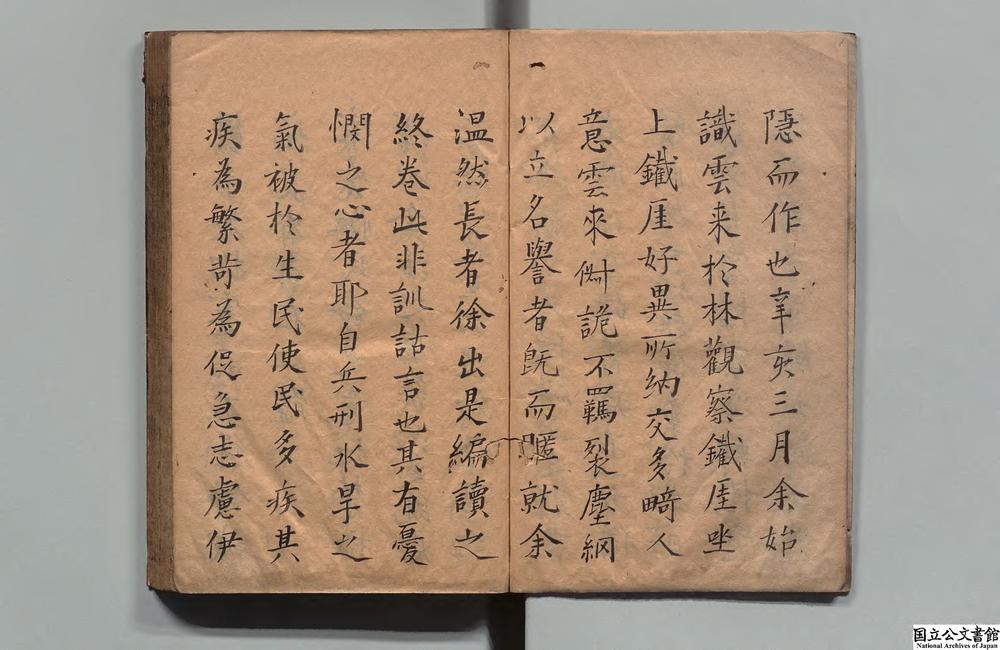 隱而作也辛亥三月余始
識雲来於林觀察鐵厓坐
上鐵厓好異所納交多畸人
意雲來倜詭不羈裂塵綱
以立名譽者既而暱就余
温然長者徐出是編讀之
終卷此非訓詁言也其有憂
憫之心者耶自兵刑水旱之
氣被於生民使民多疾其
疾為繁苛為促急志慮伊
国立公文書館
National Archives of Japan